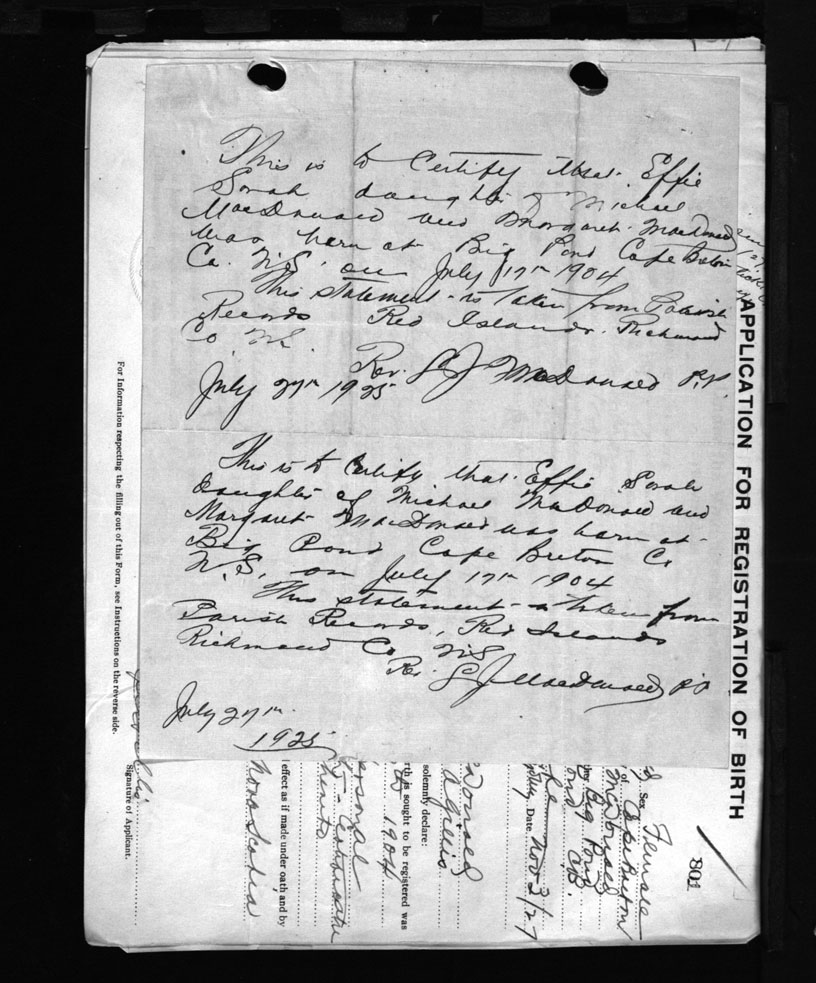 This is to Certify that Effie
Sarah daughter of Michael
MacDonald and Margaret MacDonald
was born at Big Pond Cape Breton
Co. N.S. on July 17th 1904
This statement is taken from Parish
Records Red Islands. Richmond
Co N.S.
Rev. J MacDonald P.P.
July 27th 1925
This is to Certify that Effie Sarah
daughter of Michael MacDonald and
Margaret MacDonald was born at
Big Pond Cape Breton Co.
N.S. on July 17th 1904
This statement is taken from
Parish Records, Red Islands
Richmond Co N.S
Rev. J MacDonald P.P
July 27th
1925
APPLICATION FOR REGISTRATION OF BIRTH
801
Sex Female
Cape Breton
McDonald
Big Pond
ond C.B.
Date Nov 3/27
solemnly declare:
Donald
Gillis
rth is sought to be registered was
1904
ersonal
effect as if made under oath and by
Nova Scotia
Signature of Applicant.
For Information respecting the filling out of this Form, see Instructions on the reverse side.